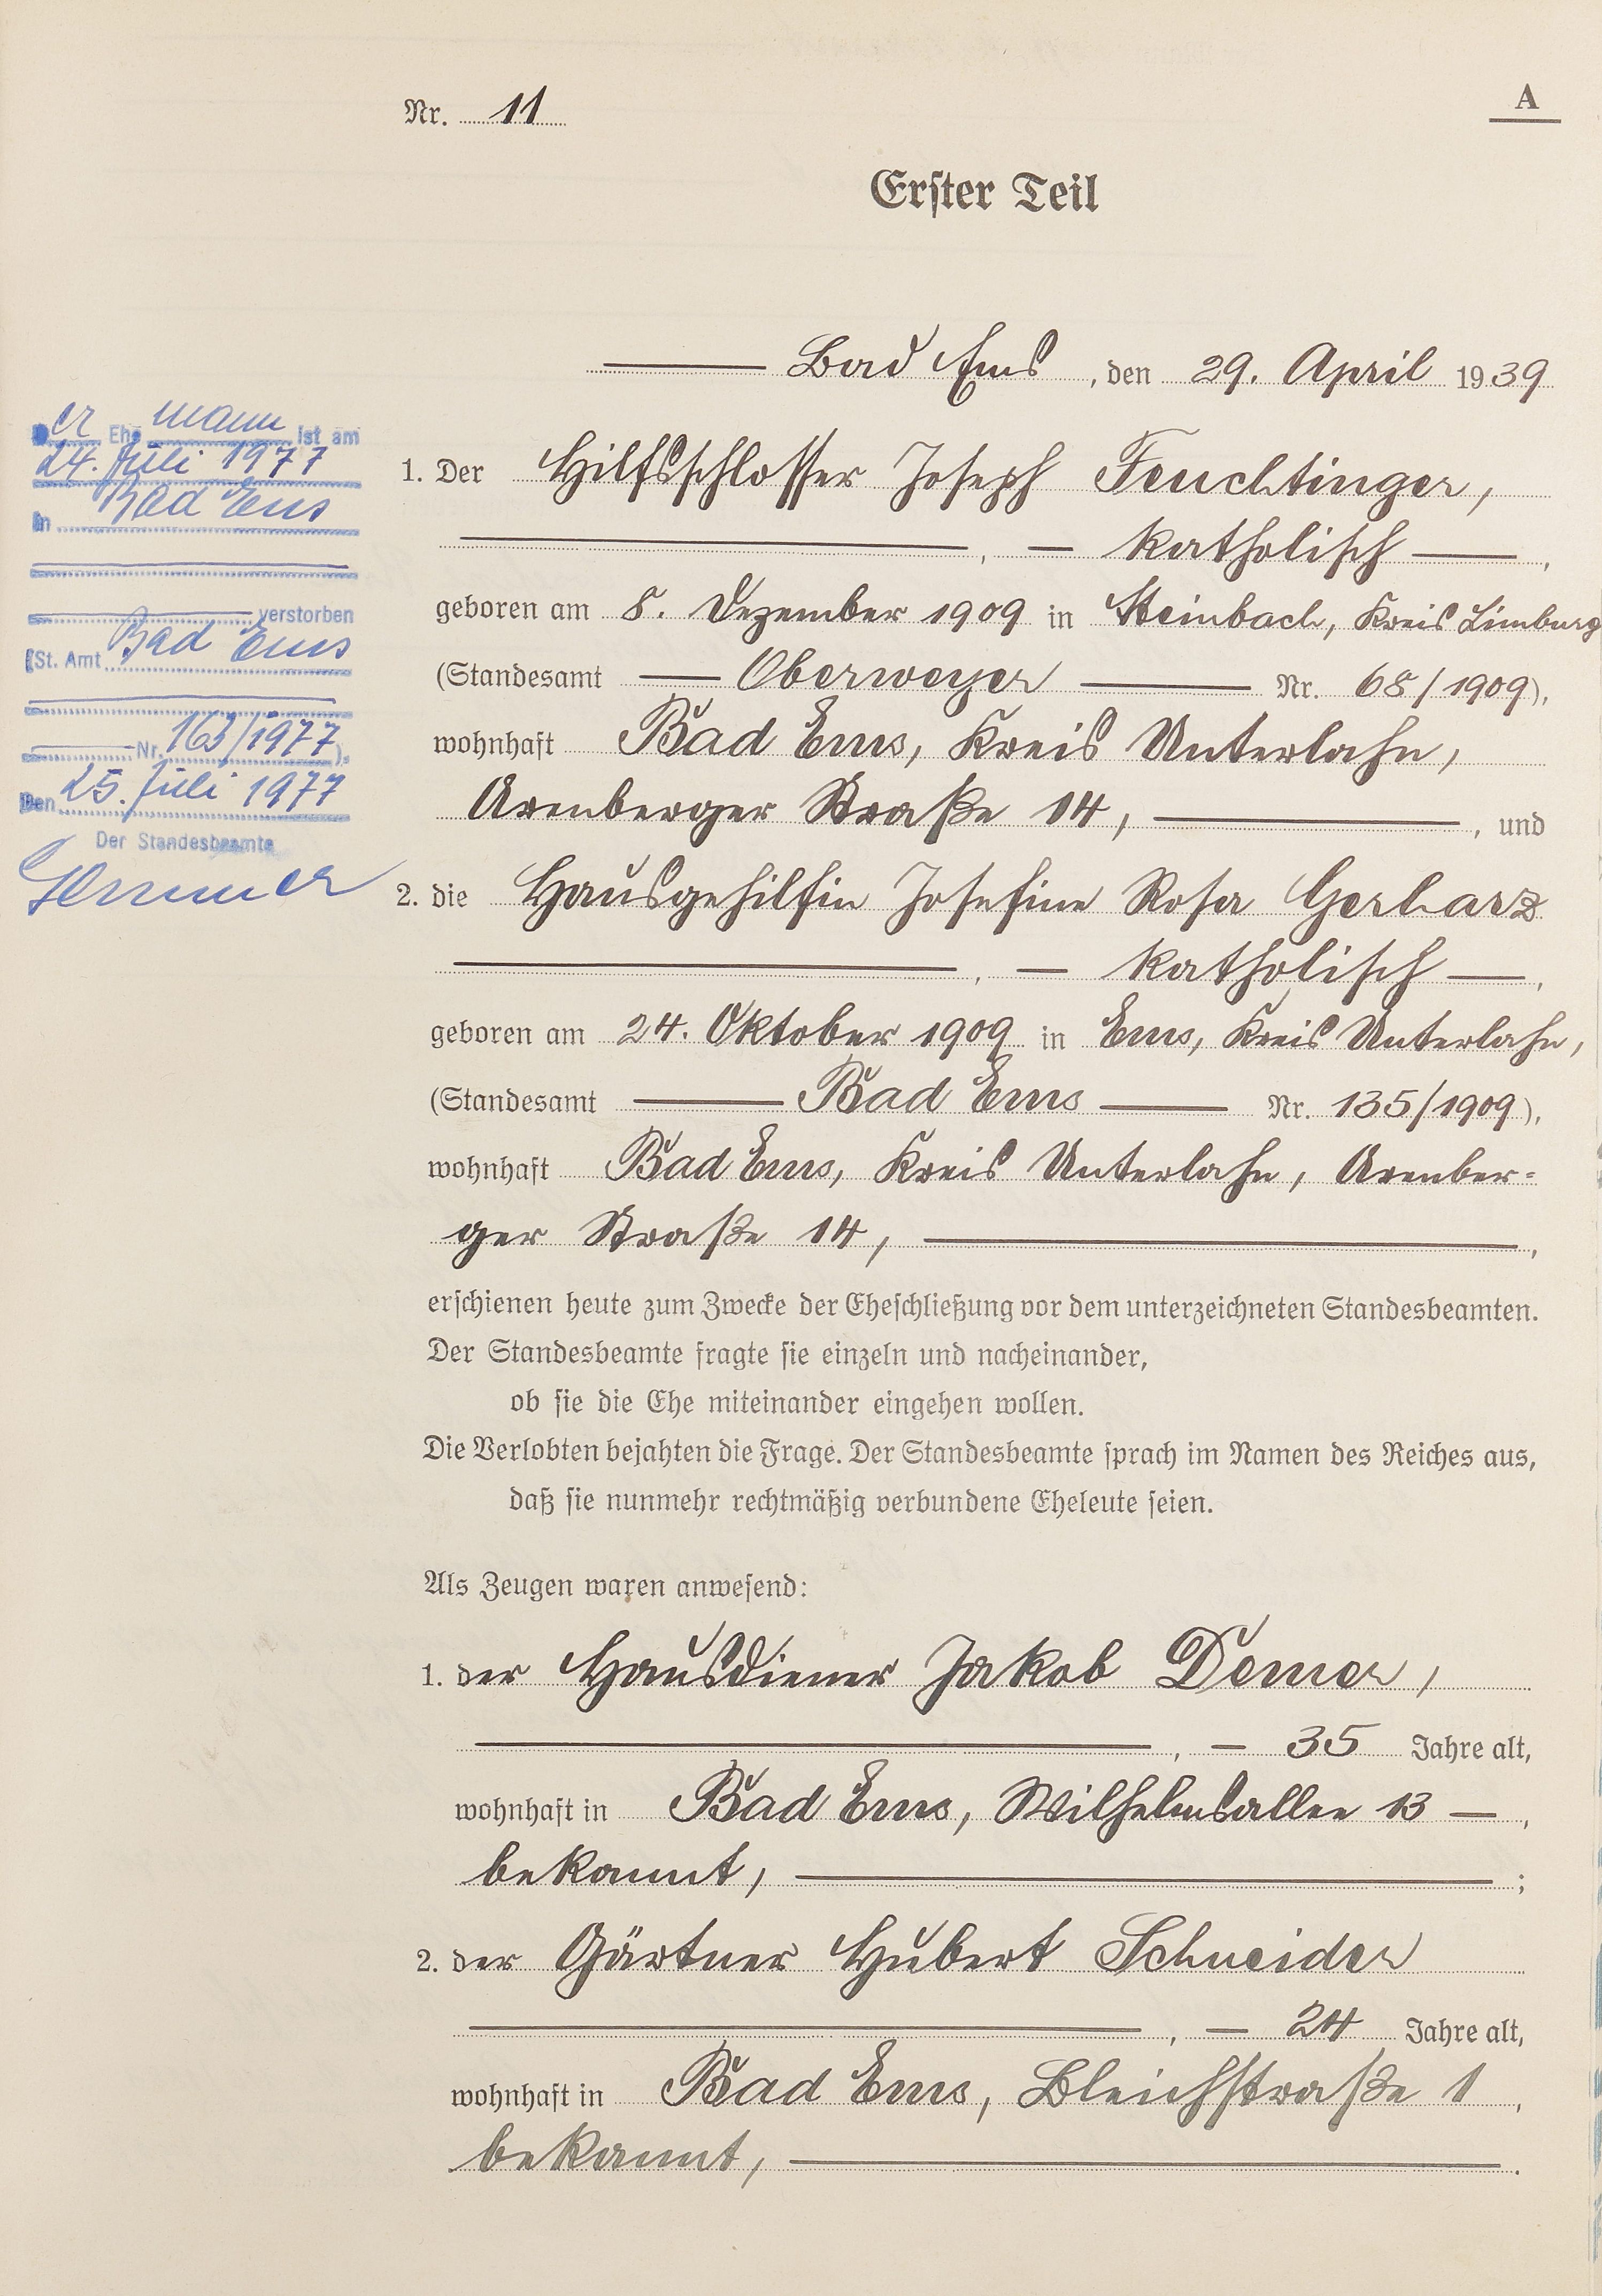 Nr. 11
A
Erster Teil
Bad Ems, den 29. April 1939
Der Ehemann ist am
24. Juli 1977
in Bad Ems
verstorben
(St. Amt Bad Ems
Nr. 163/1977).
Den 25. Juli 1977
Der Standesbeamte
1. Der Hilfsschlosser Joseph Feuchtinger,
, katholisch,
geboren am 8. Dezember 1909 in Steinbach, Kreis Limburg
(Standesamt Oberweyer Nr. 68/1909),
wohnhaft Bad Ems, Kreis Unterlahn,
Arenberger Straße 14, , und
2. die Hausgehilfin Josefine Rosa Gerharz
, katholisch,
geboren am 24. Oktober 1909 in Ems, Kreis Unterlahn,
(Standesamt Bad Ems Nr. 135/1909),
wohnhaft Bad Ems, Kreis Unterlahn, Arenber=
ger Straße 14, ,
erschienen heute zum Zwecke der Eheschließung vor dem unterzeichneten Standesbeamten.
Der Standesbeamte fragte sie einzeln und nacheinander,
ob sie die Ehe miteinander eingehen wollen.
Die Verlobten bejahten die Frage. Der Standesbeamte sprach im Namen des Reiches aus,
daß sie nunmehr rechtmäßig verbundene Eheleute seien.
Als Zeugen waren anwesend:
1. der Hausdiener Jakob Demer,
, 35 Jahre alt,
wohnhaft in Bad Ems, Wilhelmsallee 13,
bekannt, ;
2. der Gärtner Hubert Schneider
, 24 Jahre alt,
wohnhaft in Bad Ems, Bleichstraße 1,
bekannt, .